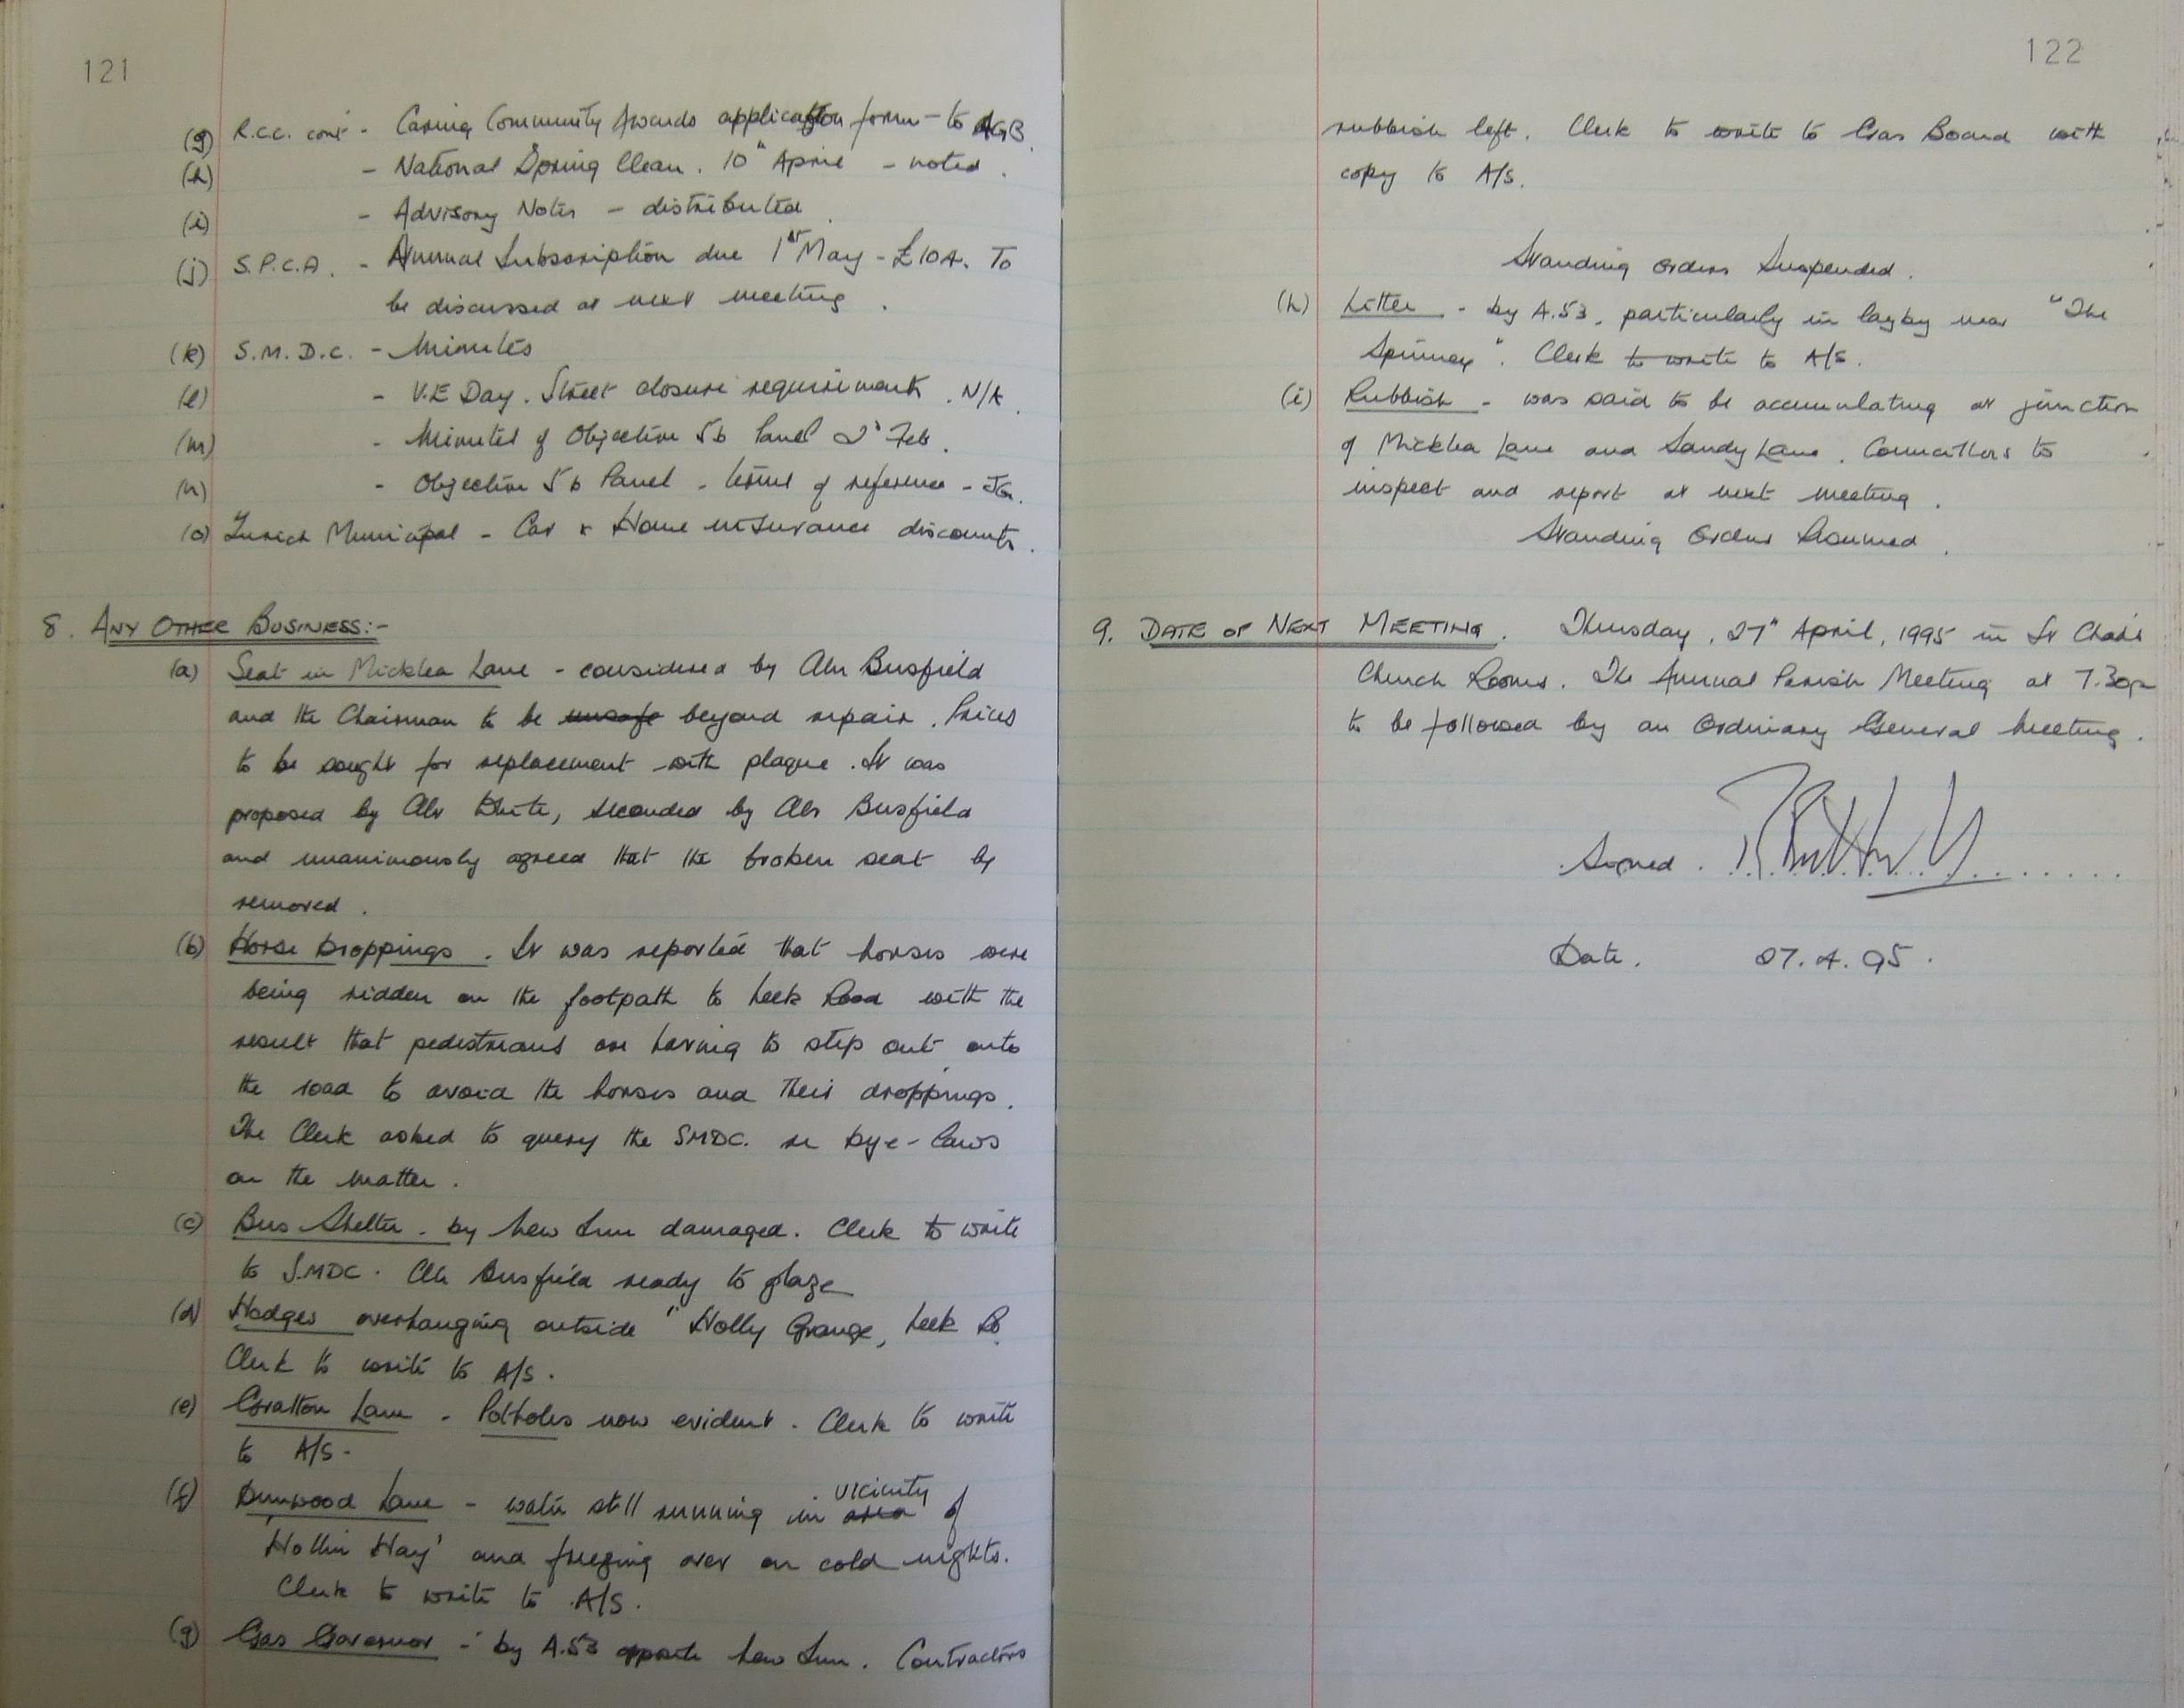 121
(g) R.C.C. cont - Caring Community Awards application form - to AGB.
(h) - National Spring Clean. 10th April - noted.
(i) - Advisory Notes - distributed.
(j) S.P.C.A. - Annual Subscription due 1st May - £104. To
be discussed at next meeting.
(k) S.M.D.C. - Minutes
(l) - V.E Day. Street closure requirements. N/A.
(m) - Minutes of Objective 5b Panel 2nd Feb.
(n) - Objective 5b Panel - terms of reference -
(o) Zurich Municipal - Car & Home insurance discounts.
8. ANY OTHER BUSINESS:-
(a) Seat in Micklea Lane - considered by Clr Busfield
and the Chairman to be unsafe beyond repair. Prices
to be sought for replacement with plaque. It was
proposed by Clr White, seconded by Clr Busfield
and unanimously agreed that the broken seat by
removed.
(b) Horse Droppings. It was reported that horses were
being ridden on the footpath to Leek Road with the
result that pedestrians are having to step out onto
the road to avoid the horses and their droppings.
The Clerk asked to query the SMDC. re bye-laws
on the matter.
(c) Bus Shelter - by New Inn damaged. Clerk to write
to S.MDC. Clr Busfield ready to glaze
(d) Hedges overhanging outside "Holly Grange, Leek Rd.
Clerk to write to A/S.
(e) Gratton Lane - Potholes now evident. Clerk to write
to A/S.
(f) Dunwood Lane - water still running in area vicinity of
'Hollin Hay' and freezing over on cold nights.
Clerk to write to A/S.
(g) Gas Governor - by A.53 opposite New Inn. Contractors
122
rubbish left. Clerk to write to Gas Board with
copy to A/S.
Standing Orders Suspended.
(h) Litter - by A.53, particularly in layby near "The
Spinney". Clerk to write to A/S.
(i) Rubbish - was said to be accumulating at junction
of Micklea Lane and Sandy Lane. Councillors to
inspect and report at next meeting.
Standing Orders Resumed.
9. DATE OF NEXT MEETING. Thursday, 27th April, 1995 in St Chad's
Church Rooms. The Annual Parish Meeting at 7.30pm
to be followed by an Ordinary General Meeting.
Signed.
Date. 27.4.95.